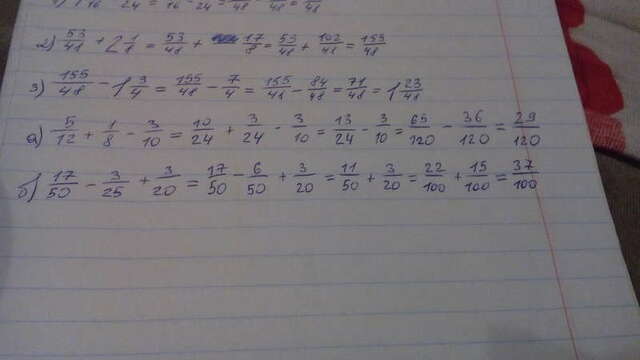 16 24 16 24 48 48 48
2) 53/48 + 2 1/8 = 53/48 + 17/8 = 53/48 + 102/48 = 155/48
3) 155/48 - 1 3/4 = 155/48 - 7/4 = 155/48 - 84/48 = 71/48 = 1 23/48
а) 5/12 + 1/8 - 3/10 = 10/24 + 3/24 - 3/10 = 13/24 - 3/10 = 65/120 - 36/120 = 29/120
б) 17/50 - 3/25 + 3/20 = 17/50 - 6/50 + 3/20 = 11/50 + 3/20 = 22/100 + 15/100 = 37/100